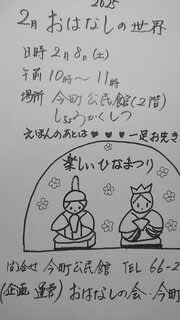 2025
2月 おはなしの世界
日時 2月8日(土)
午前 10時〜11時
場所 今町公民館(2階)
しょうかくしつ
えほんのあとは ♥ ♥ ♥ 一足お先き
楽しいひなまつり
問合せ 今町公民館 TEL 66-2
(企画 運営) おはなしの会・今町